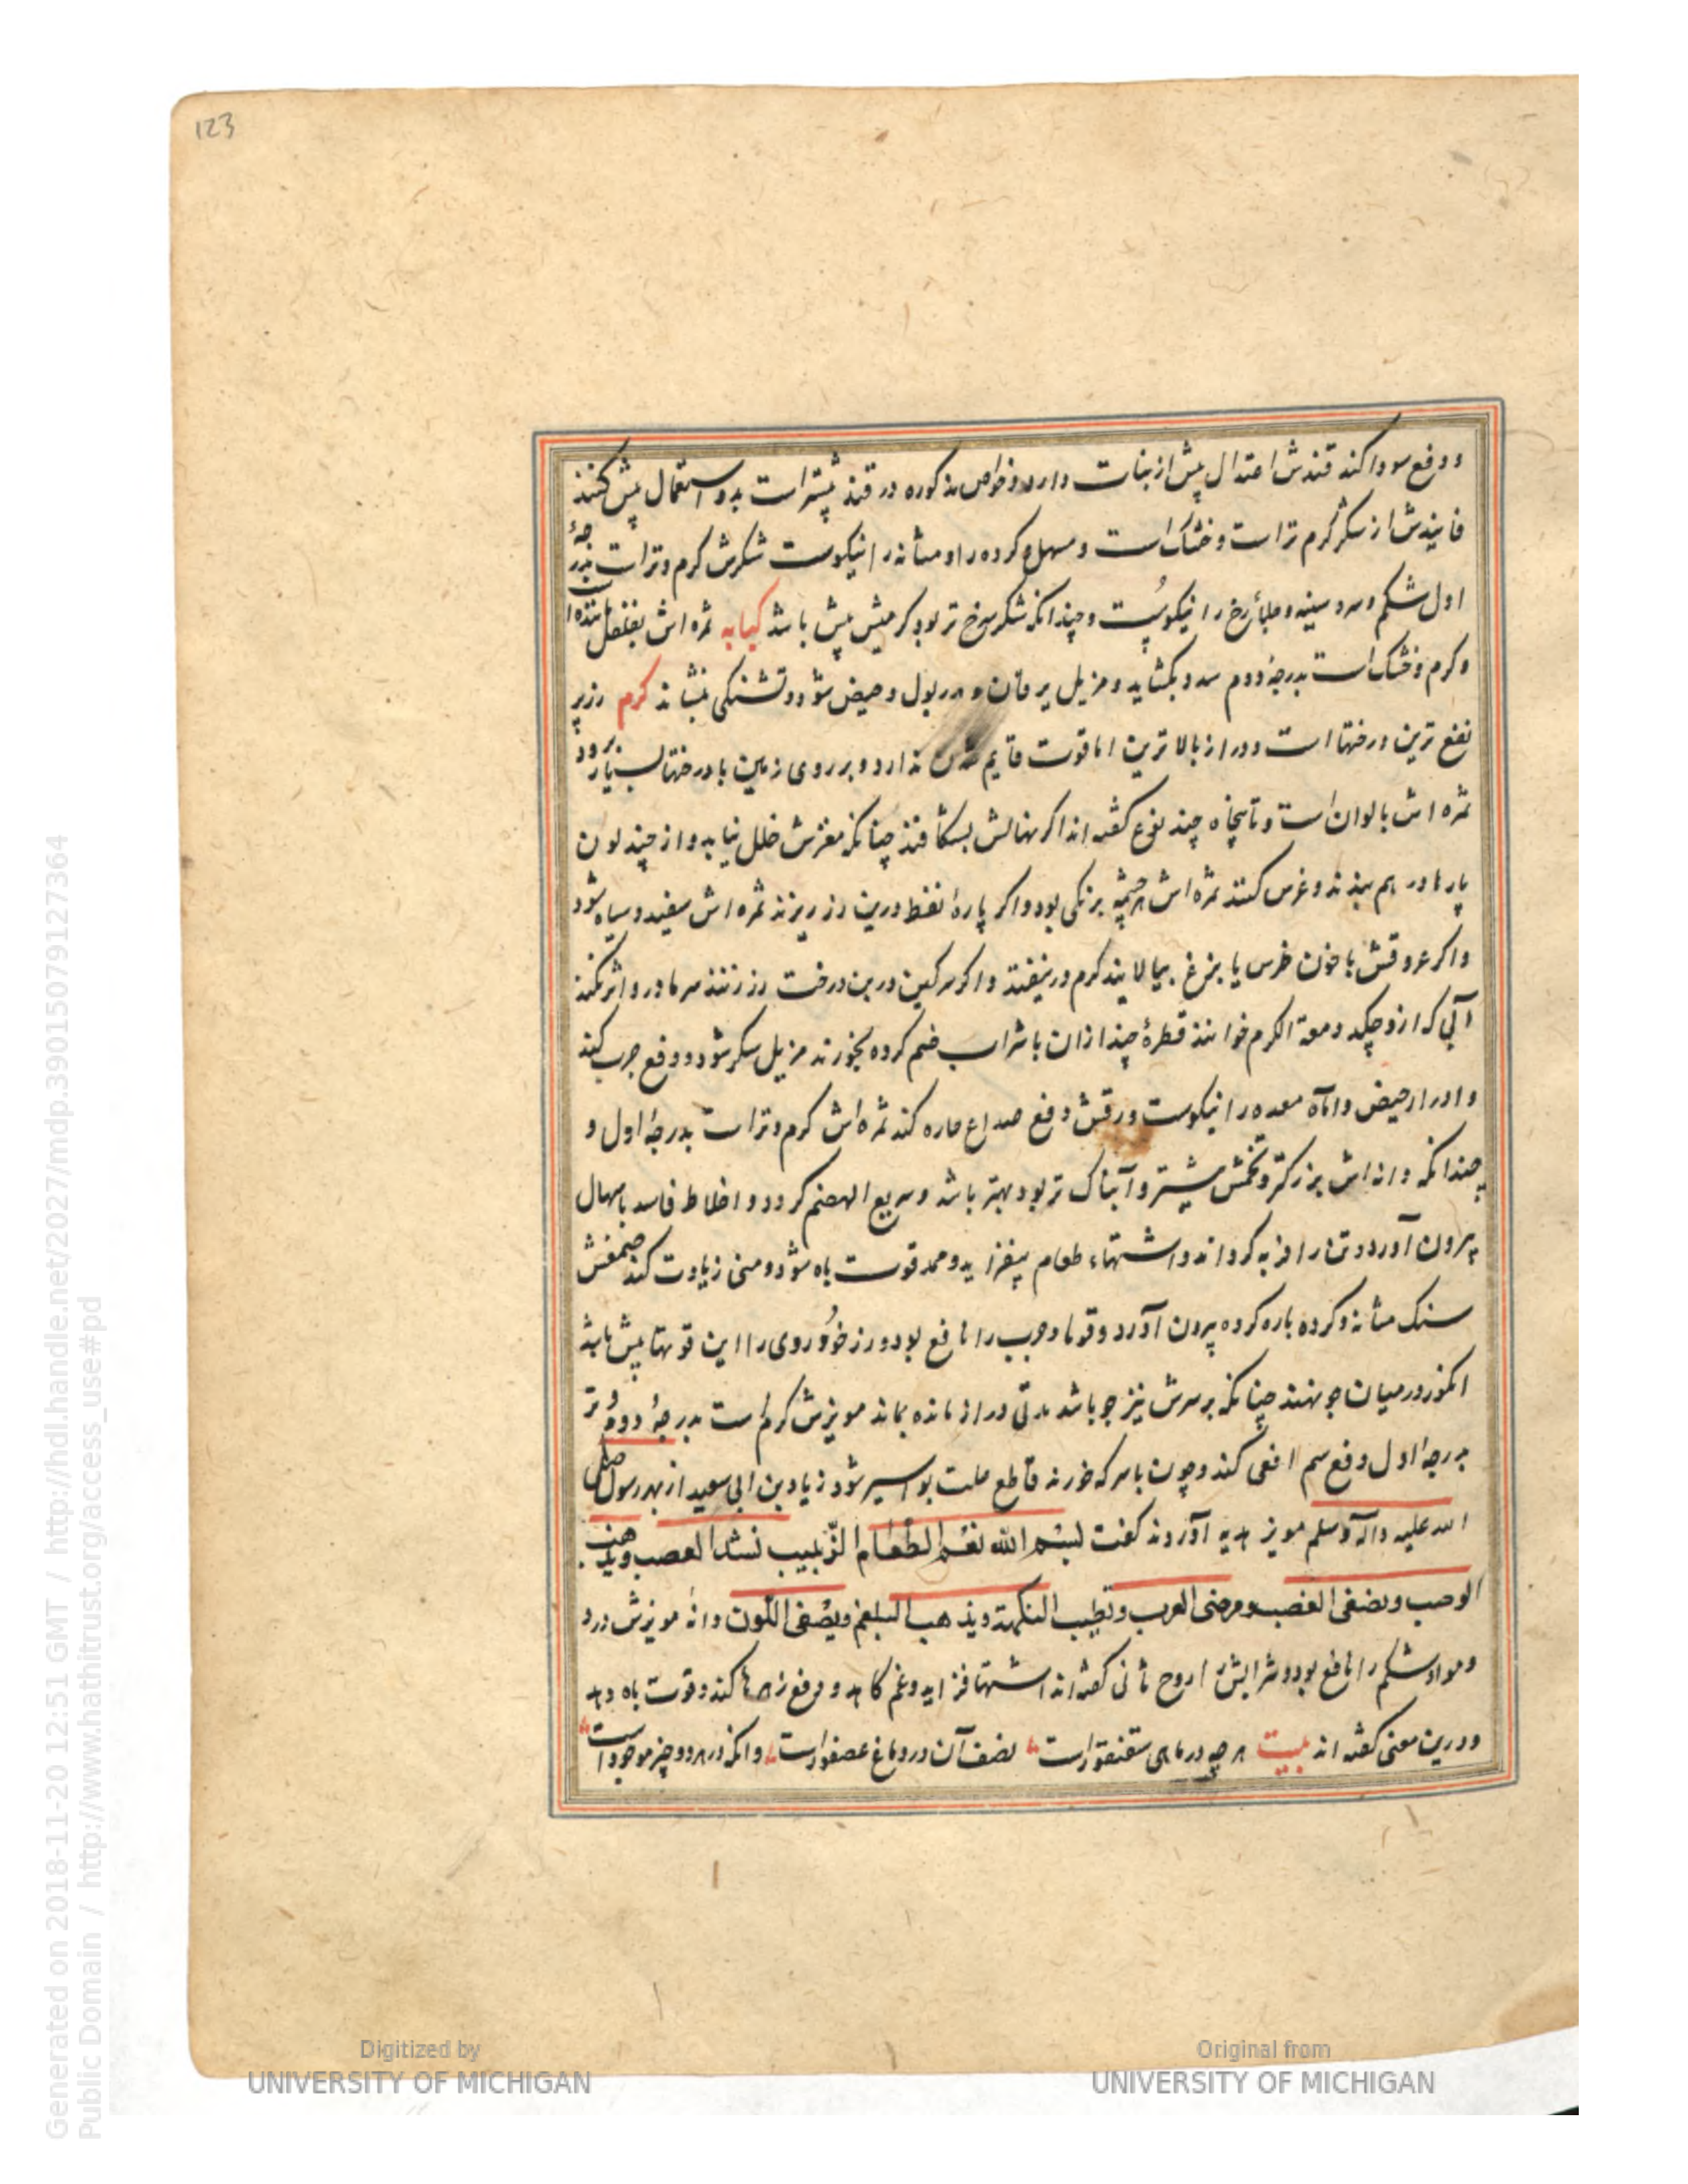 123
و دفع سودا کند قندش اعتدال بیش از نبات دارد و خواص مذکوره در قند بیشتر است بدو استعمال بیش کنند
فانیذش از شکر گرم تر است و خشک است و مسهل و کرده را و مثانه را نیکوست شکرش کرم و تر است بدرجهٔ
اول شکم و سرد سینه و رخ را نیکوست و چندانکه شکر سرخ تر بود کرمیش بیش باشد کبابه ثمره اش بفلفل ماننده
و کرم و خشک است بدرجهٔ دوم سدد بکشاید و مزیل یرقان و مدر بول و حیض شود و تشنکی بنشاند کرم رز پر
نفع ترین درختها است و دراز بالا ترین اما قوت قایم شدن ندارد و بر روی زمین با درختها بسیار رود
ثمره اش بالوان است و تا پنجاه چند نوع کفته اند اگر نهالش بشکافند چنانکه مغزش خلل نیابد و از چند لون
پارها در هم بندند و غرس کنند ثمره اش هر چشمه برنکی بود و اکر پارهٔ نفط درین رز ریزند ثمره اش سفید و سیاه شود
و اکر عروقش با خون خرس یا بزغ بیالایند کرم در نیفتد و اکر سرکین درین درخت رز زنند سرما درو اثر نکند
آبی که ازو چکد دمعة الکرم خوانند قطرهٔ چند ازان با شراب ضم کرده بخورند مزیل سکر شود و دفع جرب کند
و ادرار حیض و اماه معده را نیکوست ورقش دفع صداع حاره کند ثمره اش کرم و تر است بدرجهٔ اول و
چندانکه دانه اش بزرکتر و تخمش بیشتر و آبناک تر بود بهتر باشد و سریع الهضم کردد و اخلاط فاسد باسهال
بیرون آورد و تن را فربه کرداند و اشتهاء طعام بیفزاید و ممد قوت باه شود و منی زیادت کند صمغش
سنک مثانه و کرده پاره کرده بیرون آورد و قوبا و جرب را نافع بود و رز خودروی را این قوتها بیش باشد
انکور در میان جو نهند چنانکه بر سرش نیز جو باشد مدتی دراز مانده بماند مویزش کرم است بدرجهٔ دوم و تر
بدرجهٔ اول دفع سم افعی کند و چون با سرکه خورند قاطع علت بواسیر شود زیاد بن ابی سعید از بهر رسول صلی
الله علیه و اله و سلم مویز هدیه آوردند کفت لبسم الله نعم الطعام الزبیب تشد العصب و یذهب
الوصب و یطفی الغضب و مرضی الرب و تطیب النکهة و یذهب البلغم و یصفی اللون دانهٔ مویزش درد
و مواد شکم را نافع بود و شرابش را روح ثانی کفته اند اشتها فزاید و غم کاهد و دفع زهرها کند و قوت باه دهد
و درین معنی کفته اند بیت هر چه در ماهی سقنقور است نصف آن در دماغ عصفور است وانکه در هر دو چیز موجود است
Generated on 2018-11-20 12:51 GMT / http://hdl.handle.net/2027/mdp.39015079127364
Public Domain / http://www.hathitrust.org/access_use#pd
Digitized by
UNIVERSITY OF MICHIGAN
Original from
UNIVERSITY OF MICHIGAN